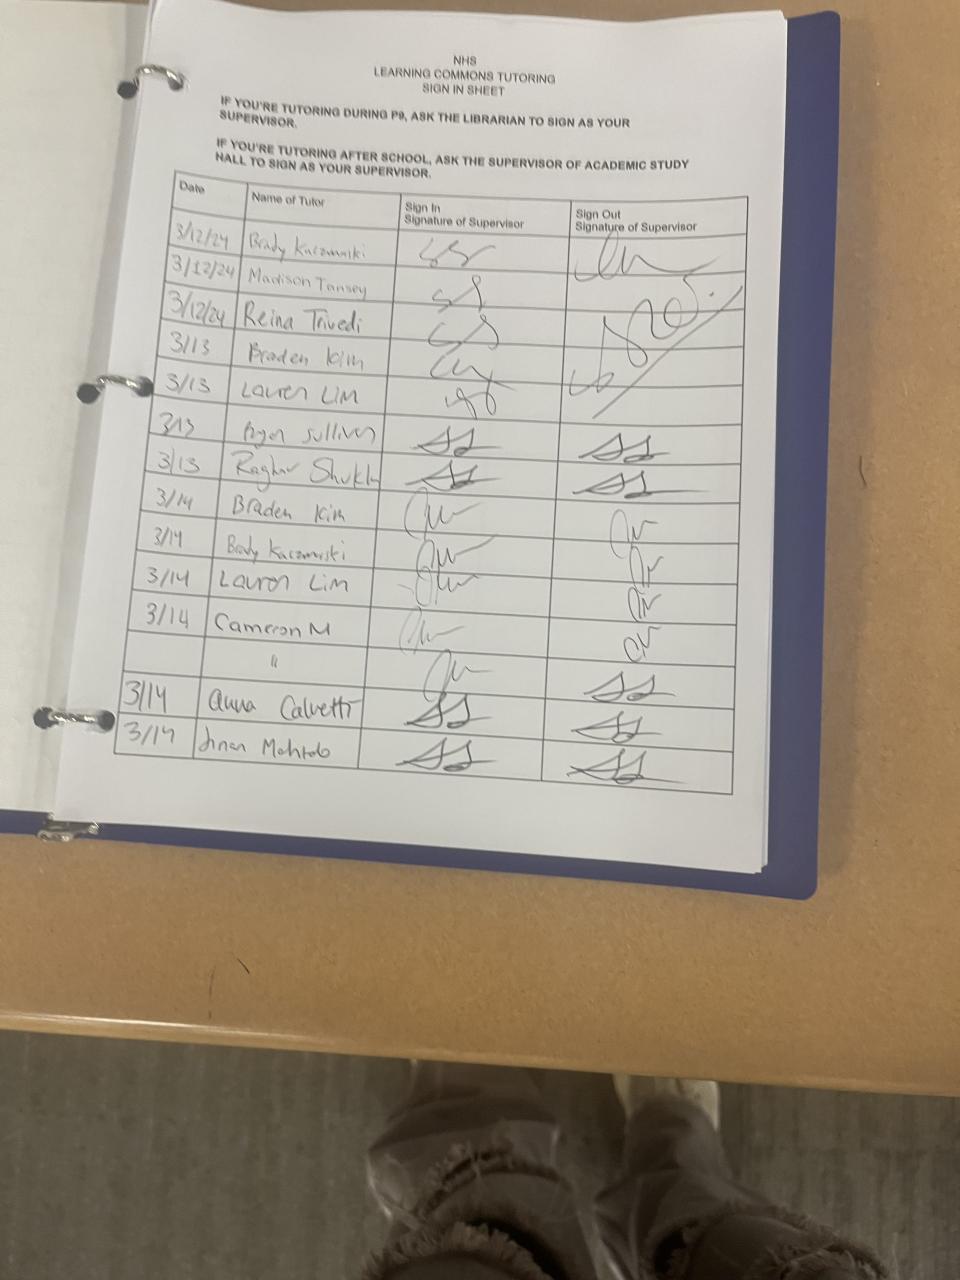 NHS
LEARNING COMMONS TUTORING
SIGN IN SHEET
IF YOU'RE TUTORING DURING P9, ASK THE LIBRARIAN TO SIGN AS YOUR
SUPERVISOR.
IF YOU'RE TUTORING AFTER SCHOOL, ASK THE SUPERVISOR OF ACADEMIC STUDY
HALL TO SIGN AS YOUR SUPERVISOR.
Date Name of Tutor Sign In Signature of Supervisor Sign Out Signature of Supervisor
3/12/24 Brady
3/12/24 Madison Tansey
3/12/24 Reina Trivedi
3/13 Braden Kim
3/13 Lauren Lim
3/13 Sullivan
3/13 Raghav Shukla
3/14 Braden Kim
3/14 Brady
3/14 Lauren Lim
3/14 Cameron M
"
3/14 Anna Calvetti
3/14